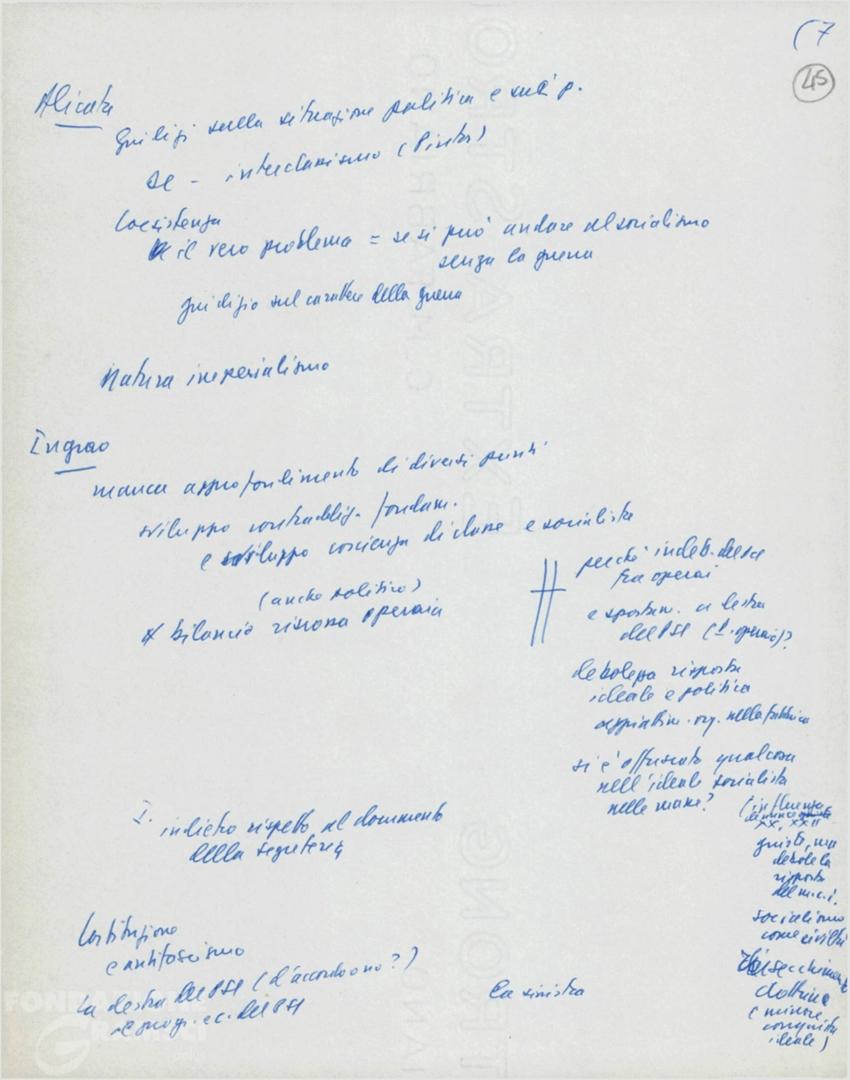 (7
45
Alicata
giudizi sulla situazione politica e sul p.
se - interclassismo (Pintor)
Coesistenza
il vero problema = se si può andare al socialismo
senza la guerra
giudizio sul carattere della guerra
Natura imperialismo
Ingrao
manca approfondimento di diversi punti
sviluppo contraddiz. fondam.
e sviluppo coscienza di classe e socialista
(anche politico)
bilancio riscossa operaia
perché indeb. del
fra operai
e spostam. a destra
del PSI ( operai)?
debolezza risposta
ideale e politica
org. nella fabbrica
si è offuscato qualcosa
nell'ideale socialista
nelle masse?
(influenza
denunce
XX, XXII
giuste, ma
debole la
risposta
del m.c.i.
socialismo
come civiltà
Insecchimento
dottrina
(minore
conquista
ideale)
I. indietro rispetto al documento
della segreteria
Costituzione
e antifascismo
La destra del PSI (d'accordo o no?)
al progr. ec. del PSI
La sinistra
FONDAZIONE
GRAMSCI